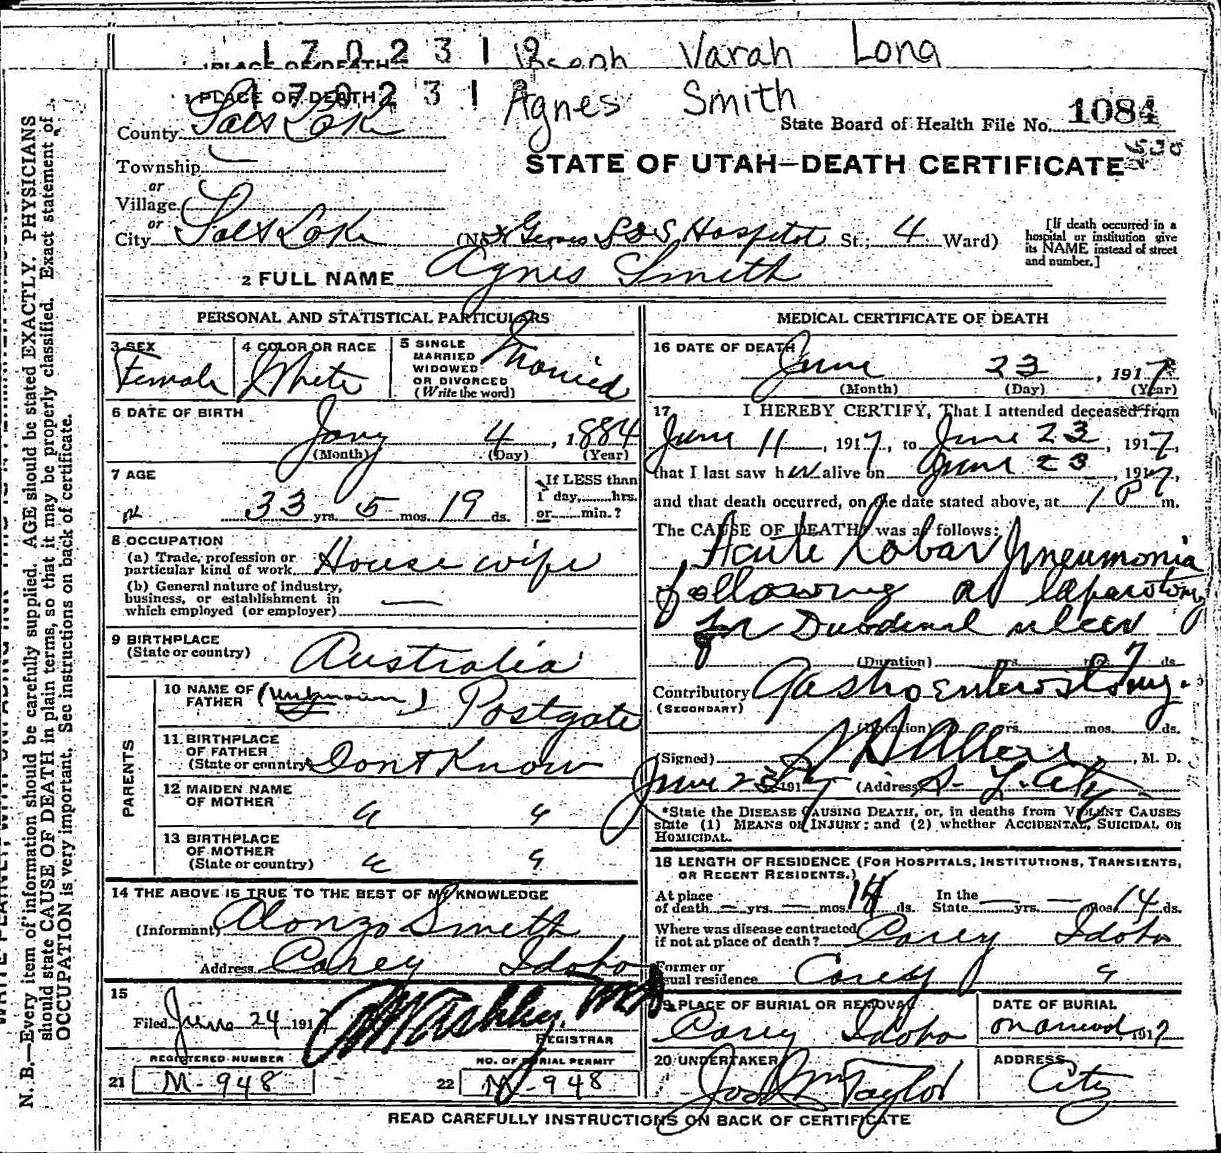 1 7 0 2 3 1 9 Varah Long
PLACE OF DEATH
1 7 0 2 3 1 9 Agnes Smith
1 PLACE OF DEATH
County Salt Lake
State Board of Health File No. 1084
Township
STATE OF UTAH—DEATH CERTIFICATE
or
Village
or
City Salt Lake (No. L D S Hospital St.; 4 Ward)
[If death occurred in a hospital or institution give its NAME instead of street and number.]
2 FULL NAME Agnes Smith
PERSONAL AND STATISTICAL PARTICULARS
3 SEX Female
4 COLOR OR RACE White
5 SINGLE MARRIED WIDOWED OR DIVORCED (Write the word) Married
6 DATE OF BIRTH
Jany 4, 1884
(Month) (Day) (Year)
7 AGE
33 yrs. 5 mos. 19 ds.
If LESS than 1 day,......hrs. or......min.?
8 OCCUPATION
(a) Trade, profession or particular kind of work House wife
(b) General nature of industry, business, or establishment in which employed (or employer) —
9 BIRTHPLACE
(State or country) Australia
PARENTS
10 NAME OF FATHER (unknown) Postgate
11 BIRTHPLACE OF FATHER (State or country) Dont Know
12 MAIDEN NAME OF MOTHER " "
13 BIRTHPLACE OF MOTHER (State or country) " "
14 THE ABOVE IS TRUE TO THE BEST OF MY KNOWLEDGE
(Informant) Alonzo Smith
Address Carey Idaho
15
Filed June 24 1917
REGISTRAR
REGISTERED NUMBER
21 M-948
NO. OF BURIAL PERMIT
22 M-948
MEDICAL CERTIFICATE OF DEATH
16 DATE OF DEATH
June 23, 1917
(Month) (Day) (Year)
17 I HEREBY CERTIFY, That I attended deceased from
June 11, 1917, to June 23, 1917,
that I last saw her alive on June 23, 1917,
and that death occurred, on the date stated above, at 1 P m.
The CAUSE OF DEATH was as follows:
Acute Lobar Pneumonia
following a laparotomy
for Duodenal ulcer
(Duration) yrs. mos. 7 ds.
Contributory (SECONDARY) Gastroenterostomy.
(Duration) yrs. mos. ds.
(Signed) M. D.
June 23 1917 (Address) S. L. City
*State the DISEASE CAUSING DEATH, or, in deaths from VIOLENT CAUSES
state (1) MEANS OF INJURY; and (2) whether ACCIDENTAL, SUICIDAL OR
HOMICIDAL.
18 LENGTH OF RESIDENCE (FOR HOSPITALS, INSTITUTIONS, TRANSIENTS,
OR RECENT RESIDENTS.)
At place of death — yrs. — mos. 14 ds. In the State — yrs. — mos. 14 ds.
Where was disease contracted if not at place of death? Carey Idaho
Former or usual residence Carey "
19 PLACE OF BURIAL OR REMOVAL
Carey Idaho
DATE OF BURIAL
1917
20 UNDERTAKER
Jos Wm Taylor
ADDRESS
City
READ CAREFULLY INSTRUCTIONS ON BACK OF CERTIFICATE
N. B.—Every item of information should be carefully supplied. AGE should be stated EXACTLY. PHYSICIANS
should state CAUSE OF DEATH in plain terms, so that it may be properly classified. Exact statement of
OCCUPATION is very important. See instructions on back of certificate.